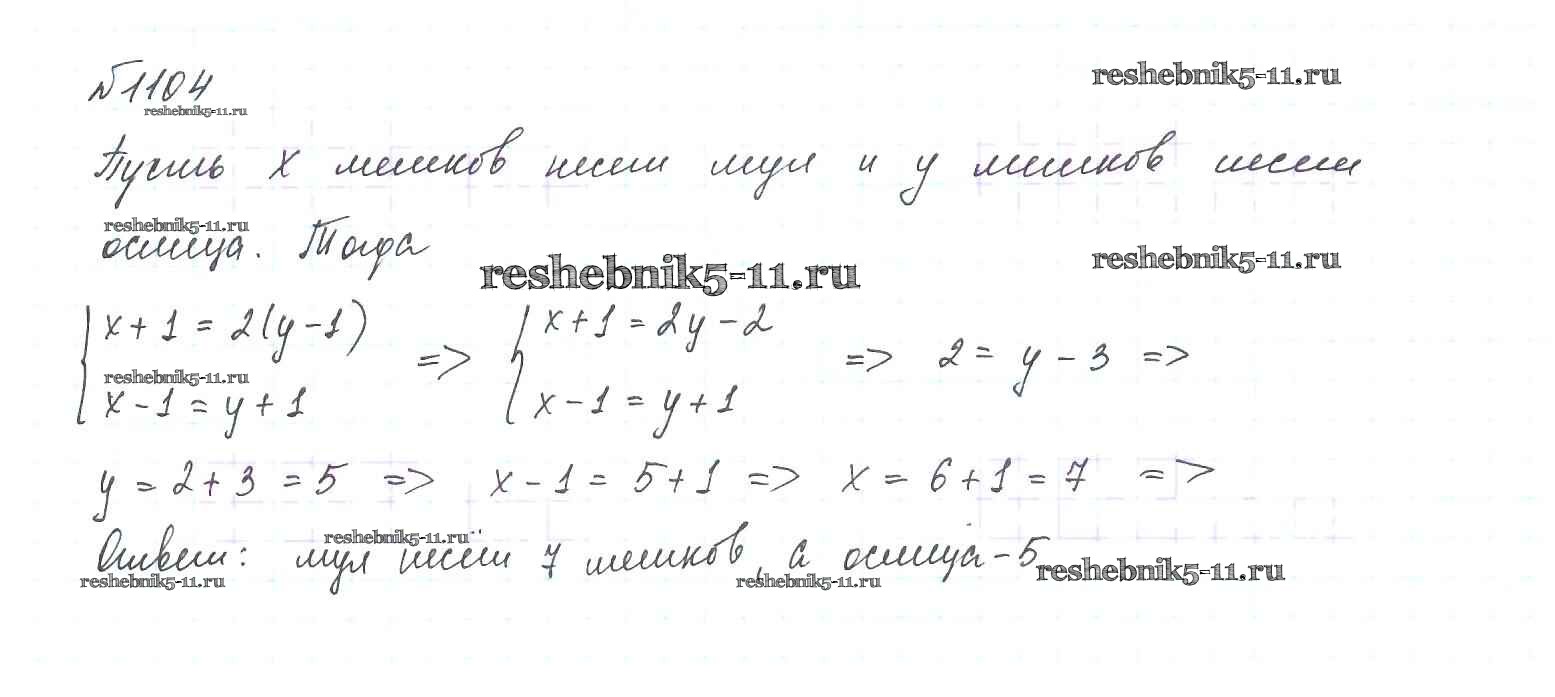 №1104
reshebnik5-11.ru
reshebnik5-11.ru
Пусть x мешков несет мул и y мешков несет
reshebnik5-11.ru
ослица. Тогда
reshebnik5-11.ru
reshebnik5-11.ru
x+1=2(y-1) => x+1=2y-2 => 2=y-3 =>
reshebnik5-11.ru
x-1=y+1 x-1=y+1
y=2+3=5 => x-1=5+1 => x=6+1=7 =>
reshebnik5-11.ru
Ответ: мул несёт 7 мешков, а ослица-5
reshebnik5-11.ru
reshebnik5-11.ru
reshebnik5-11.ru